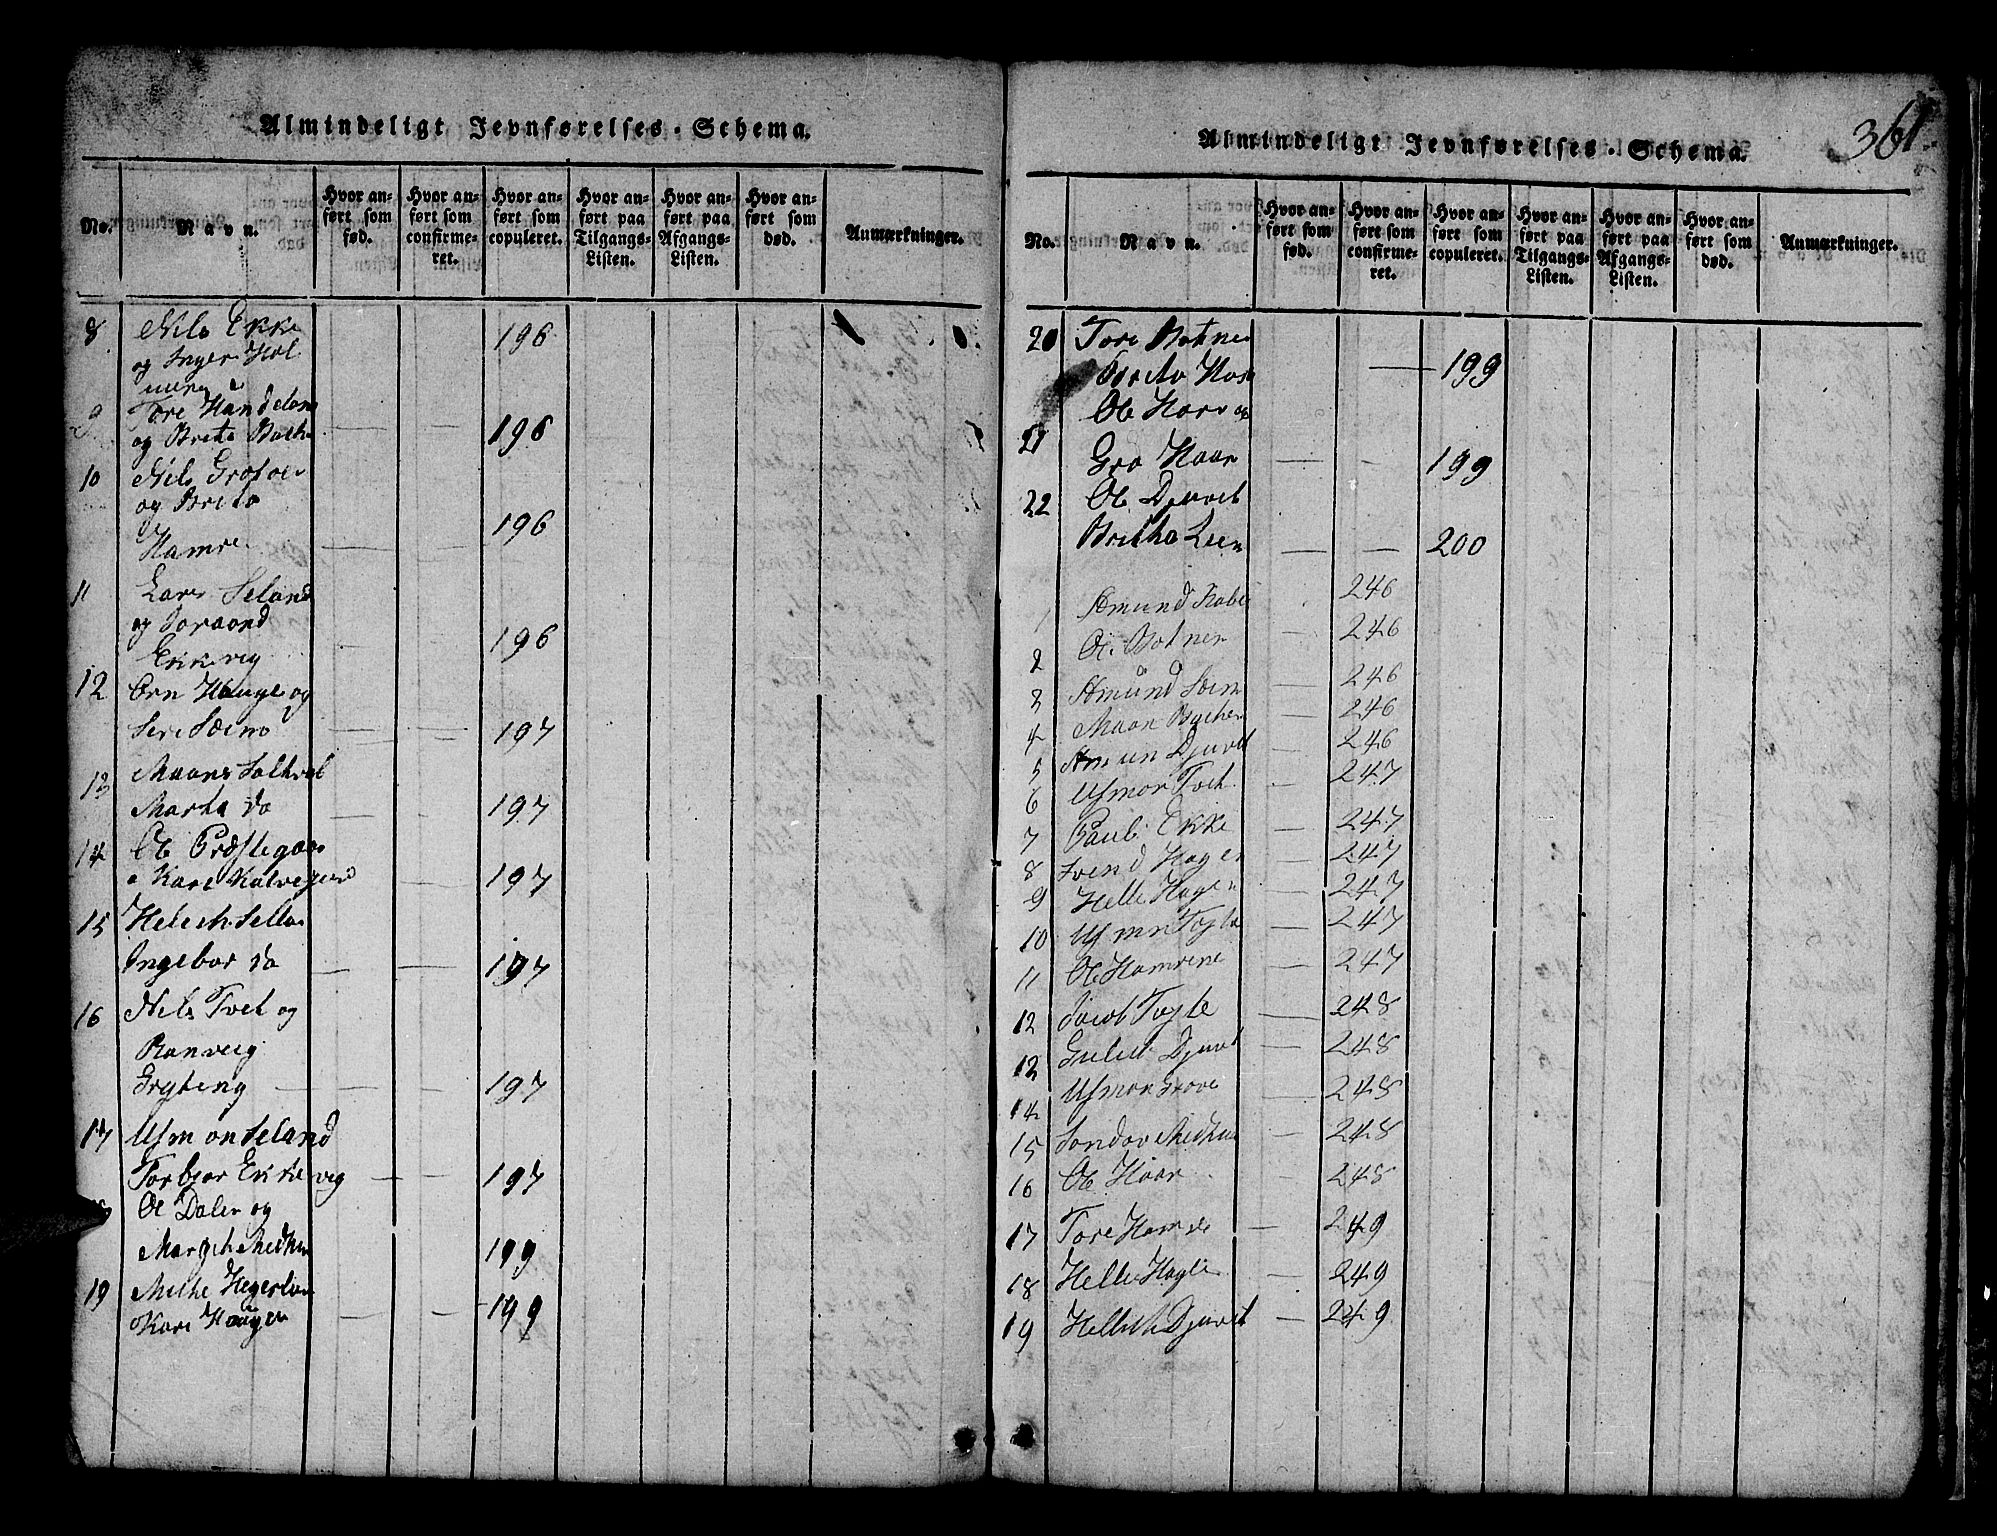 Almindeligt Jevnførelses-Schema.
No.
Navn.
Hvor anført som fød.
Hvor anført som confirmeret.
Hvor anført som copuleret.
Hvor anført paa Tilgangs-Listen.
Hvor anført paa Afgangs-Listen.
Hvor anført som død.
Anmærkninger.
8 Nils Ekke 196
og Inger Hol
9 Tore Handelan
og Brita 196
10 Nils
og Brita
Hamre 196
11 Lars Seland
og
Ekkeveg 196
12 Orn Hauge og
Siri Sæim 197
13 Maans
Marta do 197
14 Ole Præstegaar
Kari 197
15 Helich Sella
Ingebor do 197
16 Nils Tvet og
Ranveig
Gryteng 197
17 Asmon Seland
Torbjor Ekkeveg 197
Ole Dalen og
Margit Medhu 199
19 Methe Hegerlan
Kari Haugen 199
361.
Almindeligt Jevnførelses-Schema.
No.
Navn.
Hvor anført som fød.
Hvor anført som confirmeret.
Hvor anført som copuleret.
Hvor anført paa Tilgangs-Listen.
Hvor anført paa Afgangs-Listen.
Hvor anført som død.
Anmærkninger.
20 Tore Botne
Brita 199
Ole Haar og
21 Gro Haar 199
22 Ole Djuvet
Britha Lien 200
1 Amund 246
2 Ole Botnen 246
3 Amund Sæim 246
4 Maan 246
5 Amun Djuvet 246
6 Asmon Tvet 247
7 Paul Ekke 247
8 Svend Hagen 247
9 Helle Hagen 247
10 247
11 Ole 247
12 Jacob 248
12 Djuvet 248
14 Asmon Grove 248
15 Sondov Medhus 248
16 Ole Haar 248
17 Tore Hamre 249
18 Helle 249
19 Hellich Djuvet 249